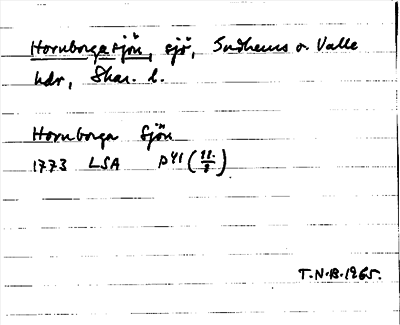 Hornborgasjön, sjö, Gudhems o. Valle
hdr, Skar. l.
Hornborga Sjön
1773 LSA P41 (11/8)
T.N.B. 1965.